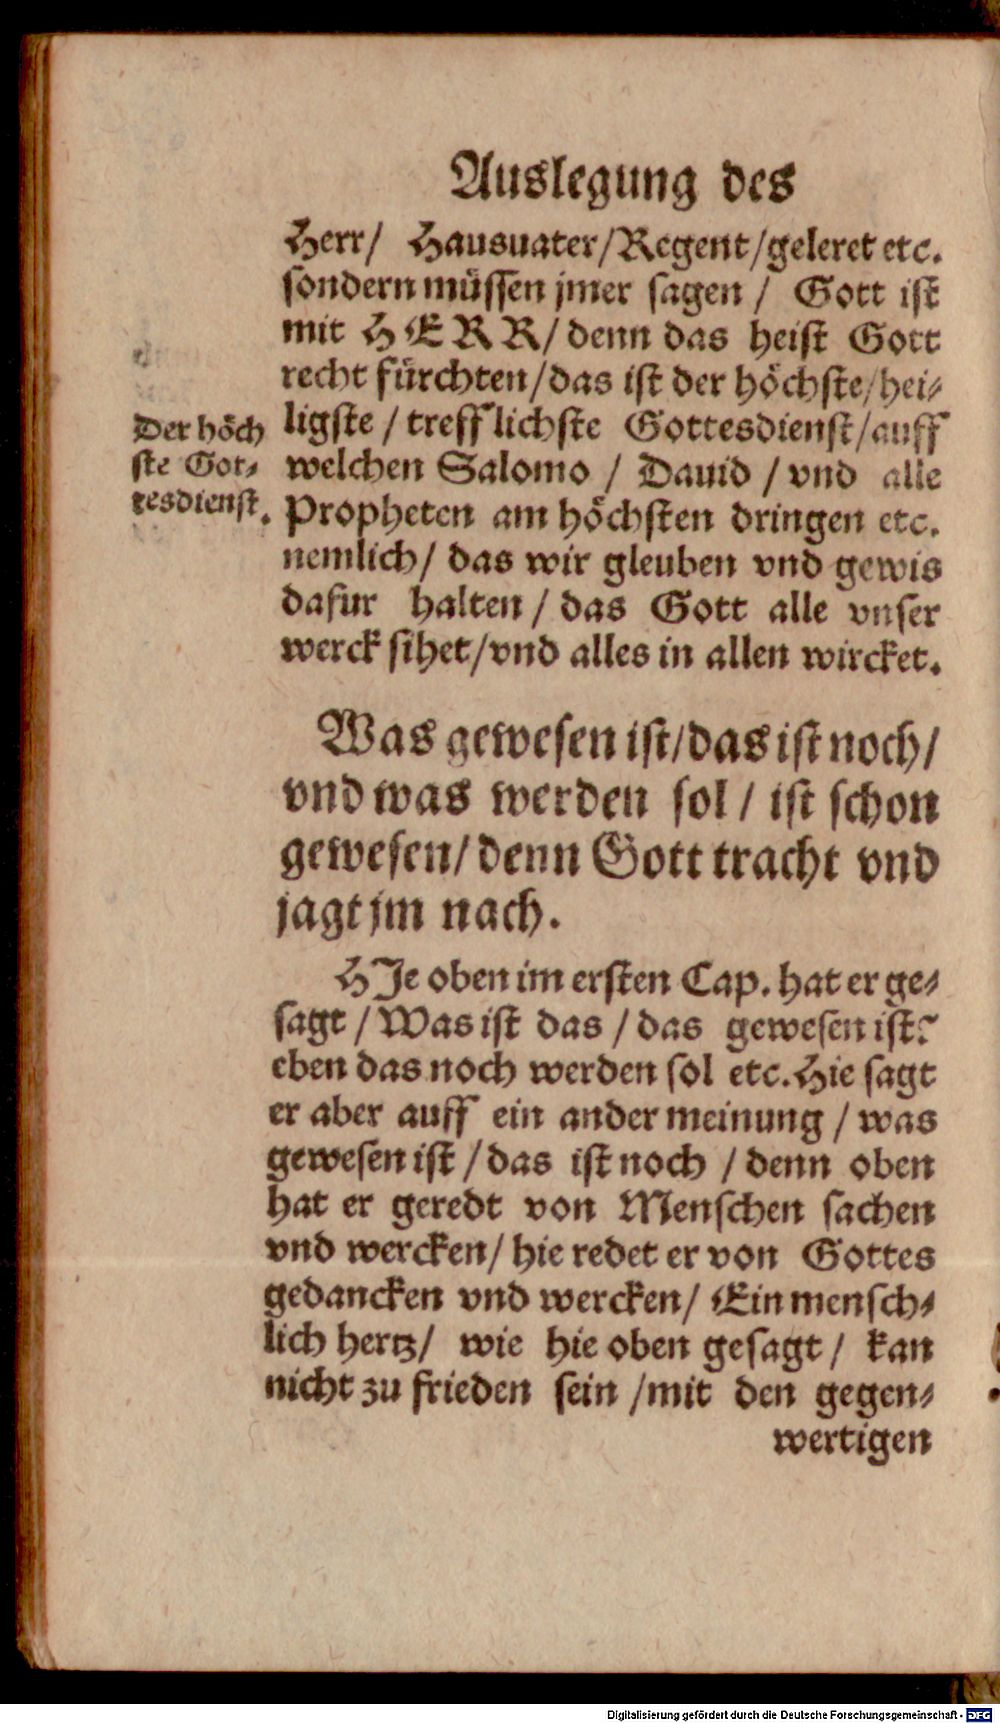 Auslegung des
Herr/ Hausuater/Regent/geleret etc.
sondern müssen jmer sagen/ Gott ist
mit HERR/denn das heist Gott
recht fürchten/das ist der höchste/hei-
ligste/trefflichste Gottesdienst/auff
welchen Salomo/Dauid/vnd alle
Propheten am höchsten dringen etc.
nemlich/das wir gleuben vnd gewis
dafur halten/das Gott alle vnser
werck sihet/vnd alles in allen wircket.
Der höch
ste Got-
tesdienst.
Was gewesen ist/das ist noch/
vnd was werden sol/ist schon
gewesen/denn Gott tracht vnd
jagt jm nach.
HJe oben im ersten Cap. hat er ge-
sagt/Was ist das/das gewesen ist?
eben das noch werden sol etc. Hie sagt
er aber auff ein ander meinung/was
gewesen ist/das ist noch/denn oben
hat er geredt von Menschen sachen
vnd wercken/hie redet er von Gottes
gedancken vnd wercken/Ein mensch-
lich hertz/ wie hie oben gesagt/kan
nicht zu frieden sein/mit den gegen-
wertigen
Digitalisierung gefördert durch die Deutsche Forschungsgemeinschaft - DFG